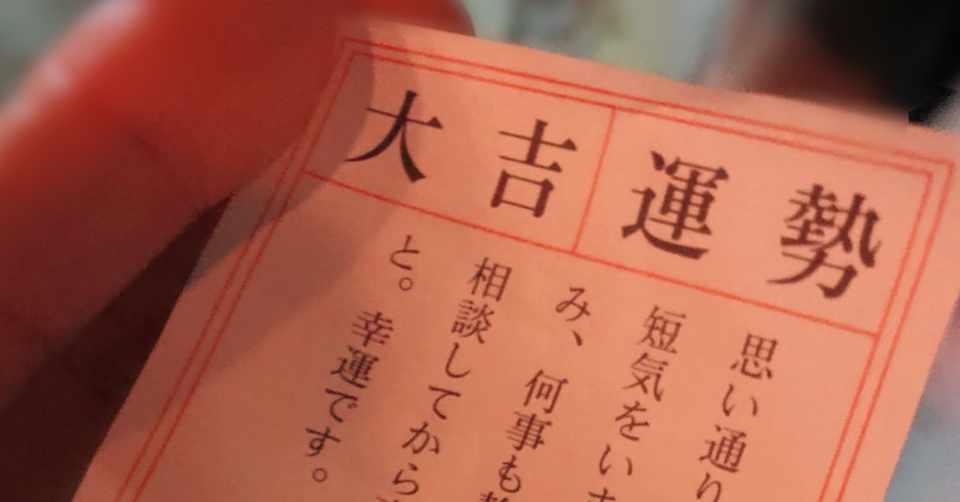 運勢
大吉
思い通り
短気をい
み、何事も
相談してから
と。幸運です。